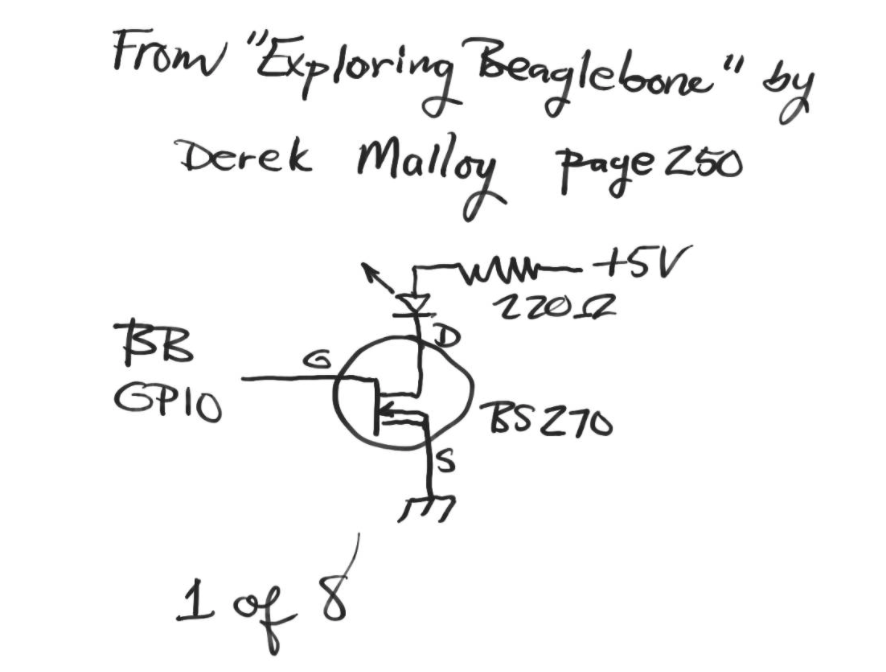 From "Exploring Beaglebone" by
Derek Malloy page 250
+5V
220Ω
D
BB
G
GPIO
BS270
S
1 of 8